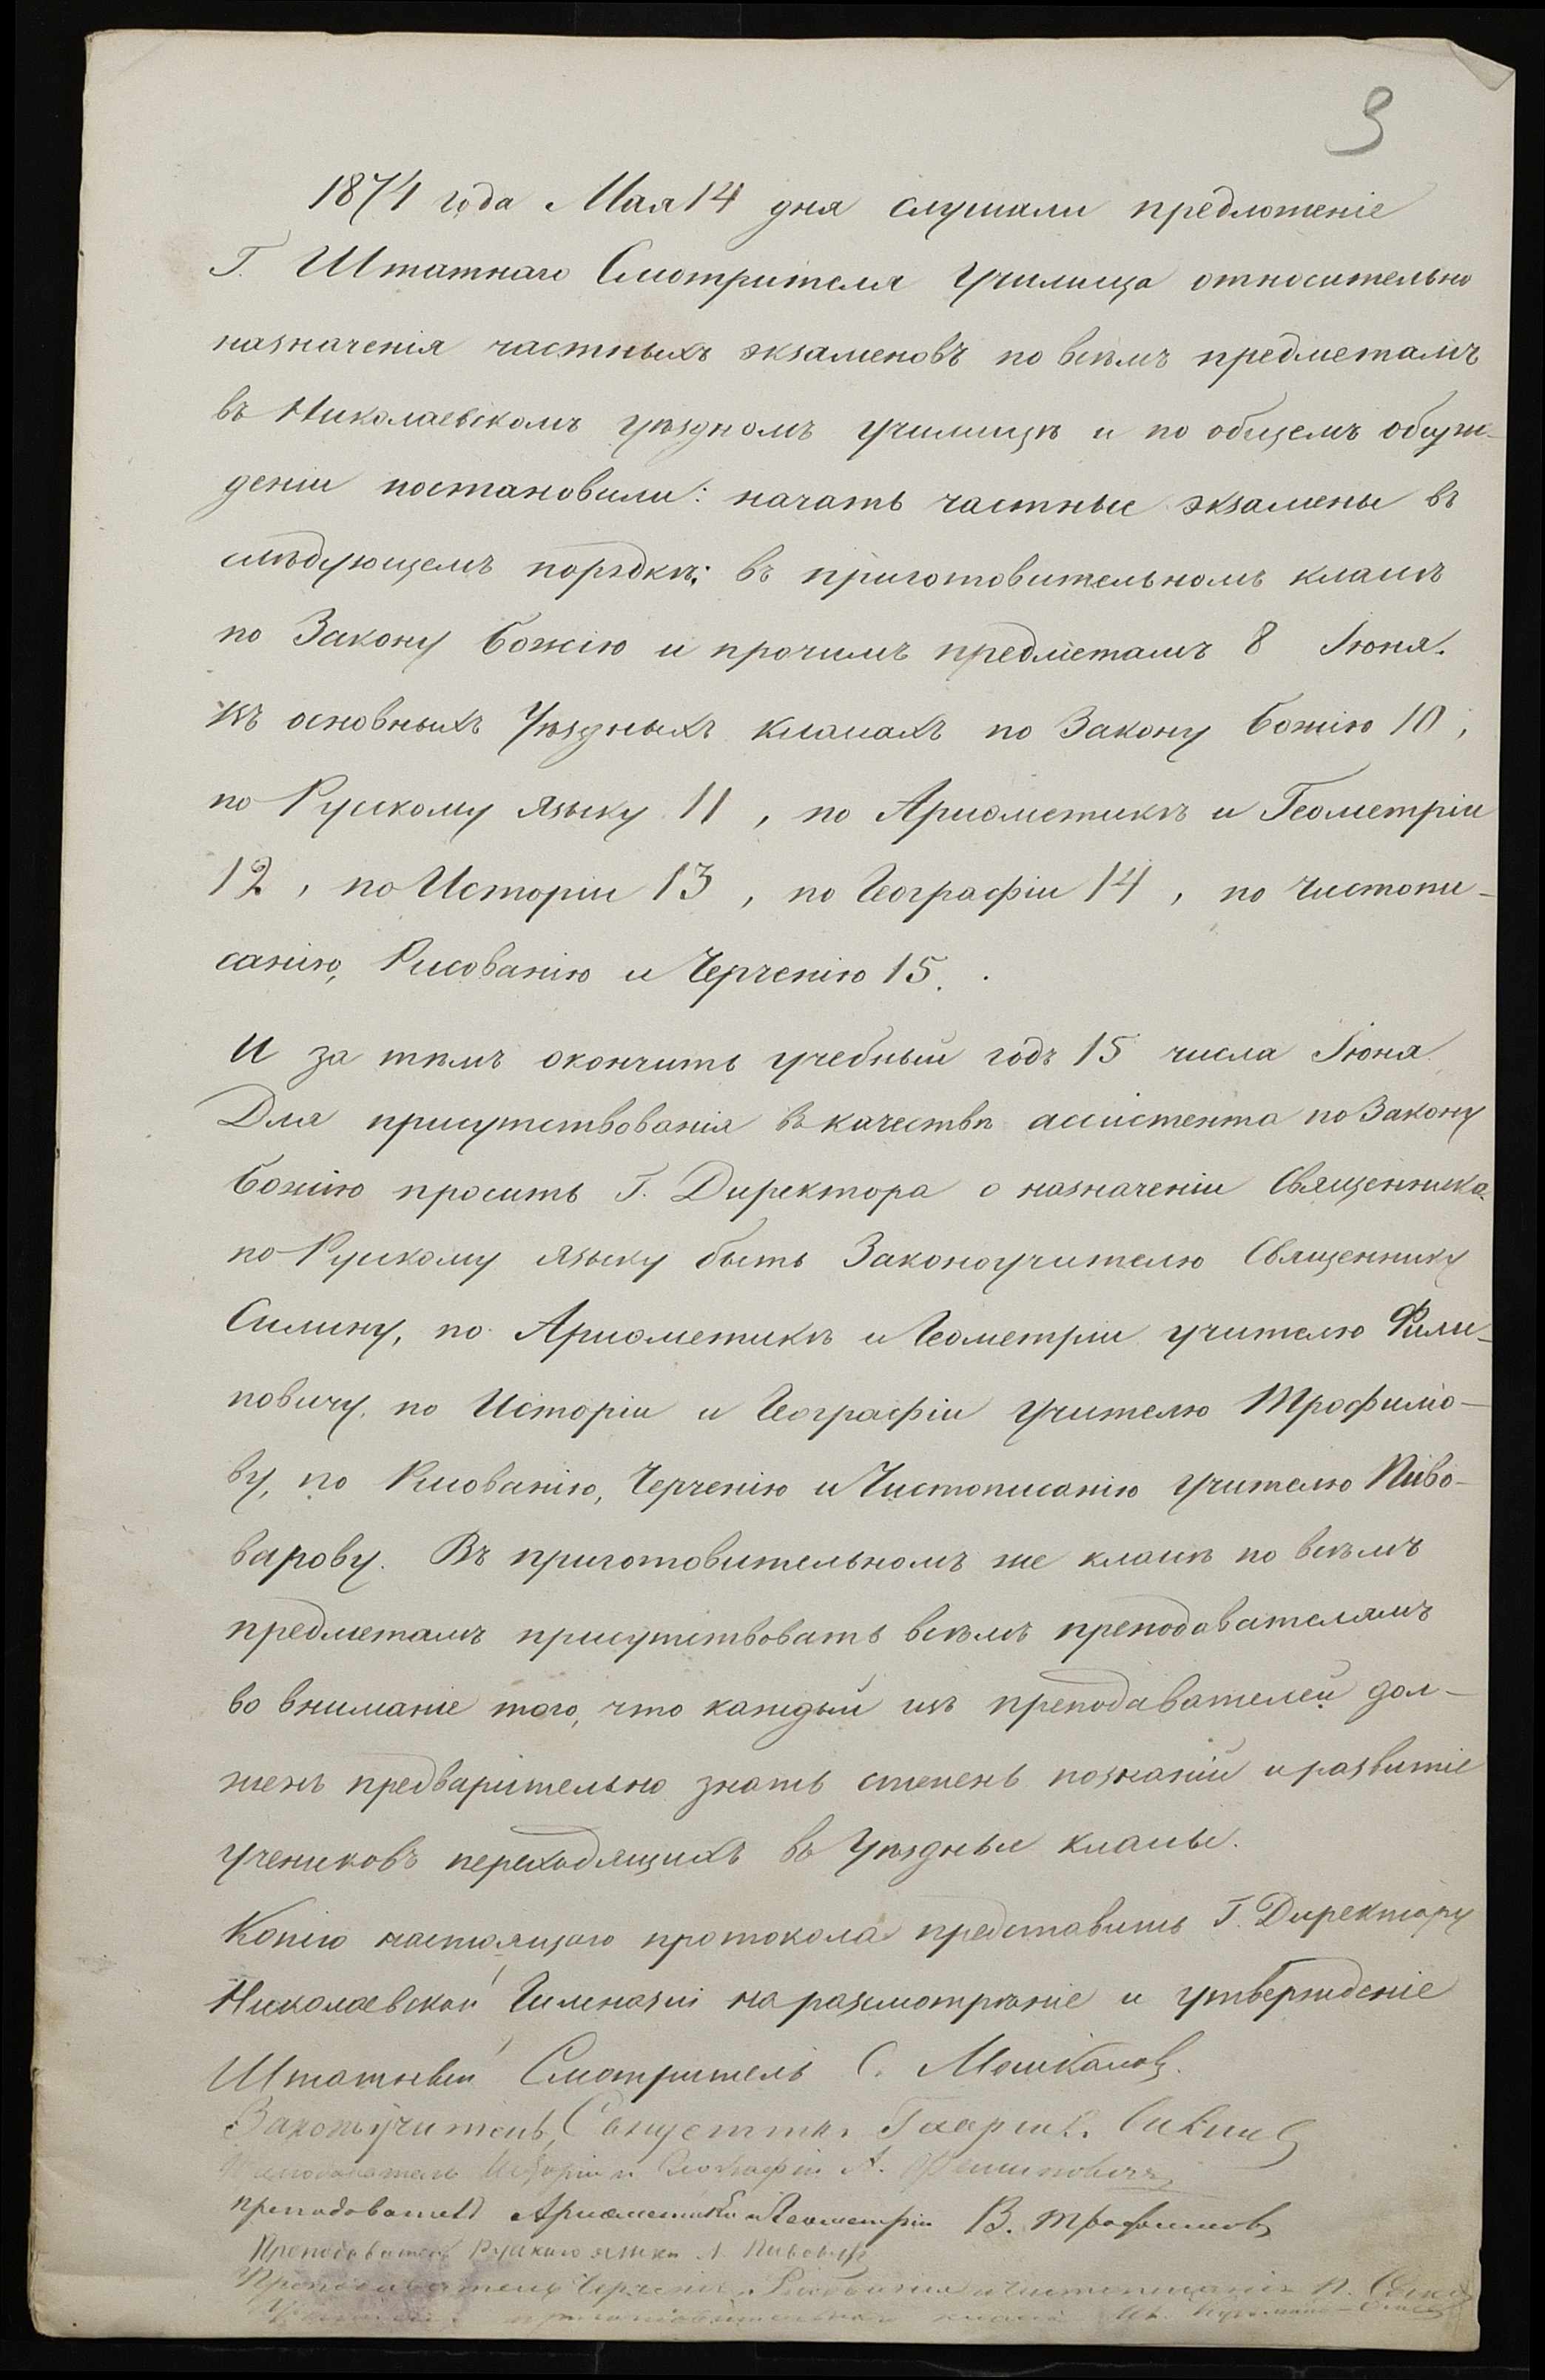 3
1874 года Мая 14 дня слушали предложеніе
Г. Штатнаго Смотрителя Училища относительно
назначенія частныхъ экзаменовъ по всѣмъ предметамъ
въ Николаевскомъ уѣздномъ училищѣ и по общемъ обсуж-
деніи постановили: начать частные экзамены въ
слѣдующемъ порядкѣ: въ приготовительномъ классѣ
по Закону Божію и прочимъ предметамъ 8 Іюня.
въ основныхъ Уѣздныхъ классахъ по Закону Божію 10,
по Русскому языку 11, по Ариѳметикѣ и Геометріи
12, по Исторіи 13, по Географіи 14, по Чистопи-
санію, Рисованію и Черченію 15.
И за тѣмъ окончить учебный годъ 15 числа Іюня.
Для присутствованія въ качествѣ ассистента по Закону
Божію просить Г. Директора о назначеніи Священника
по Русскому языку быть Законоучителю Священнику
Силину, по Ариѳметикѣ и Геометріи учителю Фили-
повичу, по Исторіи и Географіи Учителю Трофимо-
ву, по Рисованію, Черченію и Чистописанію Учителю Пиво-
варову. Въ приготовительномъ же классѣ по всѣмъ
предметамъ присутствовать всѣмъ преподавателямъ
во вниманіе того, что каждый изъ преподавателей дол-
женъ предварительно знать степень познаній и развитіе
учениковъ переходящихъ въ Уѣздные классы.
Копію настоящаго протокола представить Г. Директору
Николаевской Гимназіи на разсмотрѣніе и утвержденіе
Штатный Смотритель С. Мошкаловъ
Законоучитель, Священникъ Гавріилъ Силинъ
Преподаватель Исторіи и Географіи А. Филиповичъ
преподаватель Ариѳметики и Геометріи В. Трофимовъ
Преподаватель Русскаго языка Пивоваровъ
Преподаватель Черченія, Рисованія и Чистописанія П.
приготовительнаго класса